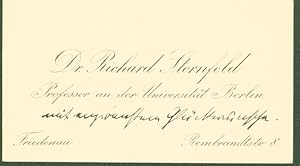 Dr. Richard Sternfeld
Professor an der Universität Berlin
mit Glückwunsche.
Friedenau Rembrandtstr 8